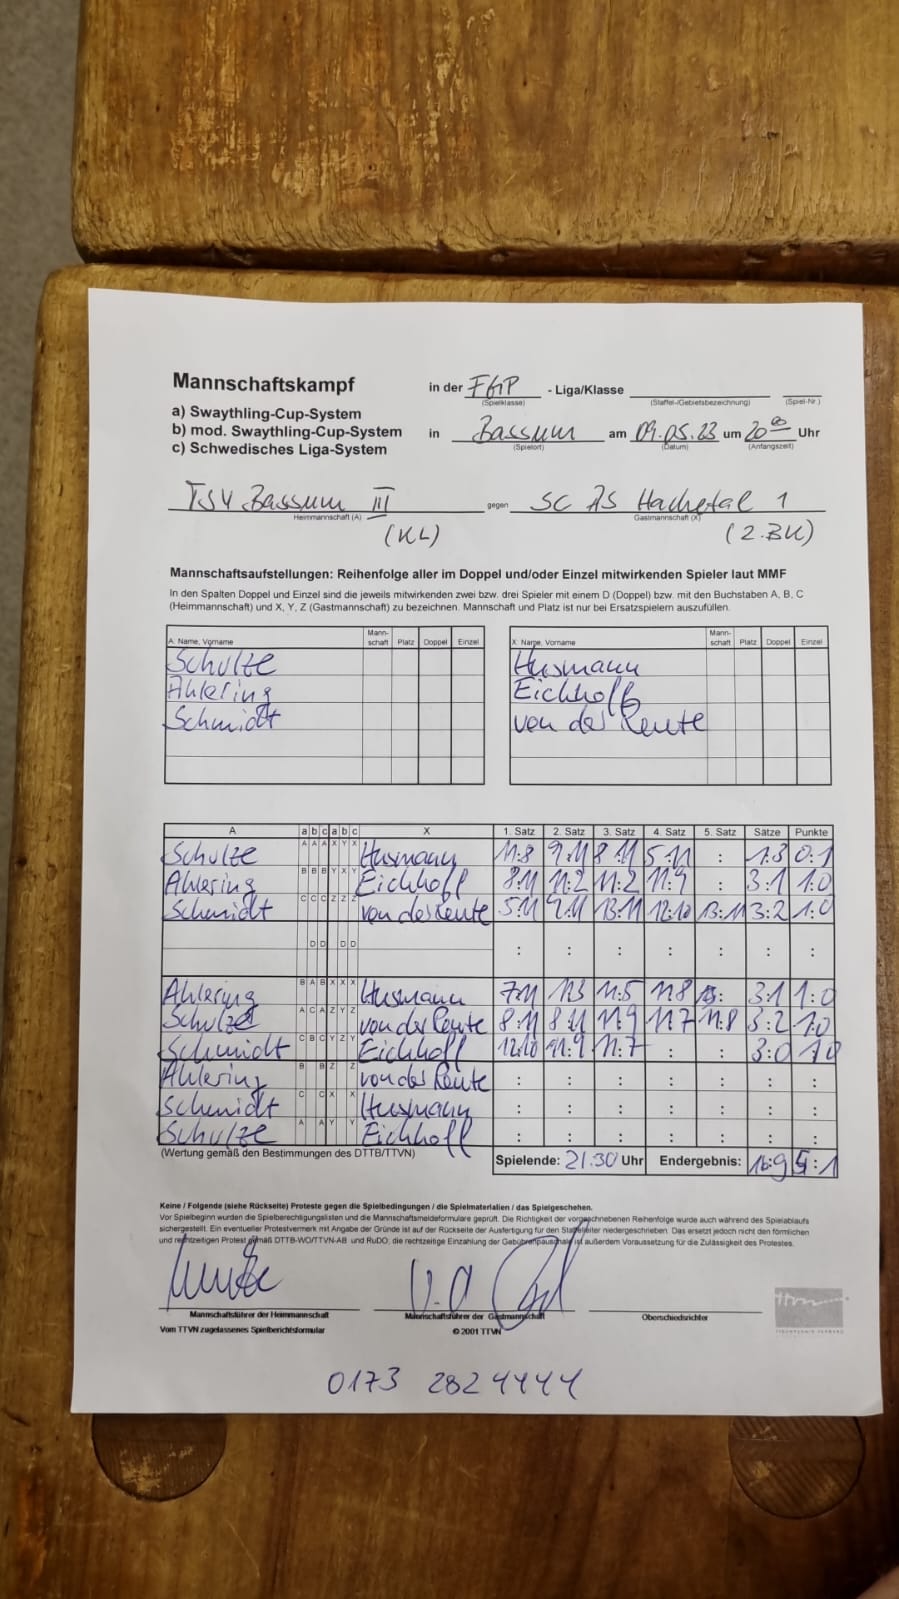 Mannschaftskampf
in der FGP - Liga/Klasse
(Spielklasse) (Staffel-/Gebietsbezeichnung) (Spiel-Nr.)
a) Swaythling-Cup-System
b) mod. Swaythling-Cup-System
c) Schwedisches Liga-System
in Bassum am 09.05.23 um 20 00 Uhr
(Spielort) (Datum) (Anfangszeit)
TSV Bassum III gegen SC AS Hachetal 1
Heimmannschaft (A) Gastmannschaft (X)
(KL) (2.BK)
Mannschaftsaufstellungen: Reihenfolge aller im Doppel und/oder Einzel mitwirkenden Spieler laut MMF
In den Spalten Doppel und Einzel sind die jeweils mitwirkenden zwei bzw. drei Spieler mit einem D (Doppel) bzw. mit den Buchstaben A, B, C
(Heimmannschaft) und X, Y, Z (Gastmannschaft) zu bezeichnen. Mannschaft und Platz ist nur bei Ersatzspielern auszufüllen.
A: Name, Vorname Mann-schaft Platz Doppel Einzel X: Name, Vorname Mann-schaft Platz Doppel Einzel
Schulze Husmann
Ahlering Eichhoff
Schmidt von der Reute
A a b c a b c X 1. Satz 2. Satz 3. Satz 4. Satz 5. Satz Sätze Punkte
Schulze A A A X Y X Husmann 11:8 9:11 8:11 5:11 : 1:3 0:1
Ahlering B B B Y X Y Eichhoff 8:11 11:2 11:2 11:9 : 3:1 1:0
Schmidt C C C Z Z Z von der Reute 5:11 9:11 13:11 12:10 13:11 3:2 1:0
D D D D : : : : : : :
Ahlering B A B X X X Husmann 7:11 11:3 11:5 11:8 : 3:1 1:0
Schulze A C A Z Y Z von der Reute 8:11 8:11 11:9 11:7 11:8 3:2 1:0
Schmidt C B C Y Z Y Eichhoff 12:10 11:9 11:7 : : 3:0 1:0
Ahlering B B Z Z von der Reute : : : : : : :
Schmidt C C X X Husmann : : : : : : :
Schulze A A Y Y Eichhoff : : : : : : :
(Wertung gemäß den Bestimmungen des DTTB/TTVN) Spielende: 21.30 Uhr Endergebnis: 16:9 5:1
Keine / Folgende (siehe Rückseite) Proteste gegen die Spielbedingungen / die Spielmaterialien / das Spielgeschehen.
Vor Spielbeginn wurden die Spielberechtigungslisten und die Mannschaftsmeldeformulare geprüft. Die Richtigkeit der vorgeschriebenen Reihenfolge wurde auch während des Spielablaufs
sichergestellt. Ein eventueller Protestvermerk mit Angabe der Gründe ist auf der Rückseite der Ausfertigung für den Staffelleiter niedergeschrieben. Das ersetzt jedoch nicht den förmlichen
und rechtzeitigen Protest gemäß DTTB-WO/TTVN-AB und RuDO; die rechtzeitige Einzahlung der Gebührenpauschale ist außerdem Voraussetzung für die Zulässigkeit des Protestes.
Mannschaftsführer der Heimmannschaft Mannschaftsführer der Gastmannschaft Oberschiedsrichter
Vom TTVN zugelassenes Spielberichtsformular © 2001 TTVN
ttvn
0173 2824444